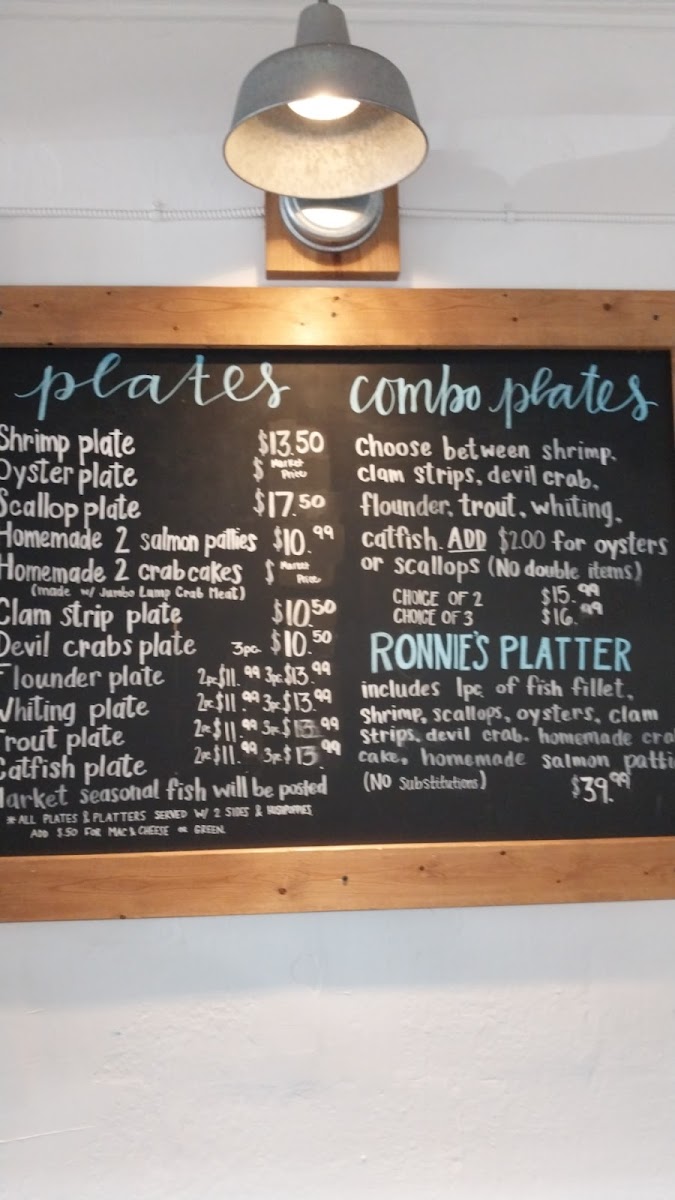 plates
Shrimp plate $13.50
Oyster plate $ Market Price
Scallop plate $17.50
Homemade 2 salmon patties $10.99
Homemade 2 crab cakes $ Market Price
(made w/ Jumbo Lump Crab Meat)
Clam strip plate $10.50
Devil crabs plate 3pc. $10.50
Flounder plate 2pc $11.99 3pc $13.99
Whiting plate 2pc $11.99 3pc $13.99
Trout plate 2pc $11.99 3pc $13.99
Catfish plate 2pc $11.99 3pc $13.99
Market seasonal fish will be posted
*ALL PLATES & PLATTERS SERVED W/ 2 SIDES & HUSHPUPPIES
ADD $.50 FOR MAC & CHEESE OR GREEN.
combo plates
Choose between shrimp,
clam strips, devil crab,
flounder, trout, whiting,
catfish. ADD $2.00 for oysters
or scallops (NO double items)
CHOICE OF 2 $15.99
CHOICE OF 3 $16.99
RONNIE'S PLATTER
includes 1pc. of fish fillet,
Shrimp, scallops, oysters, clam
Strips, devil crab, homemade cra
cake, homemade salmon patti
(NO Substitutions) $39.99